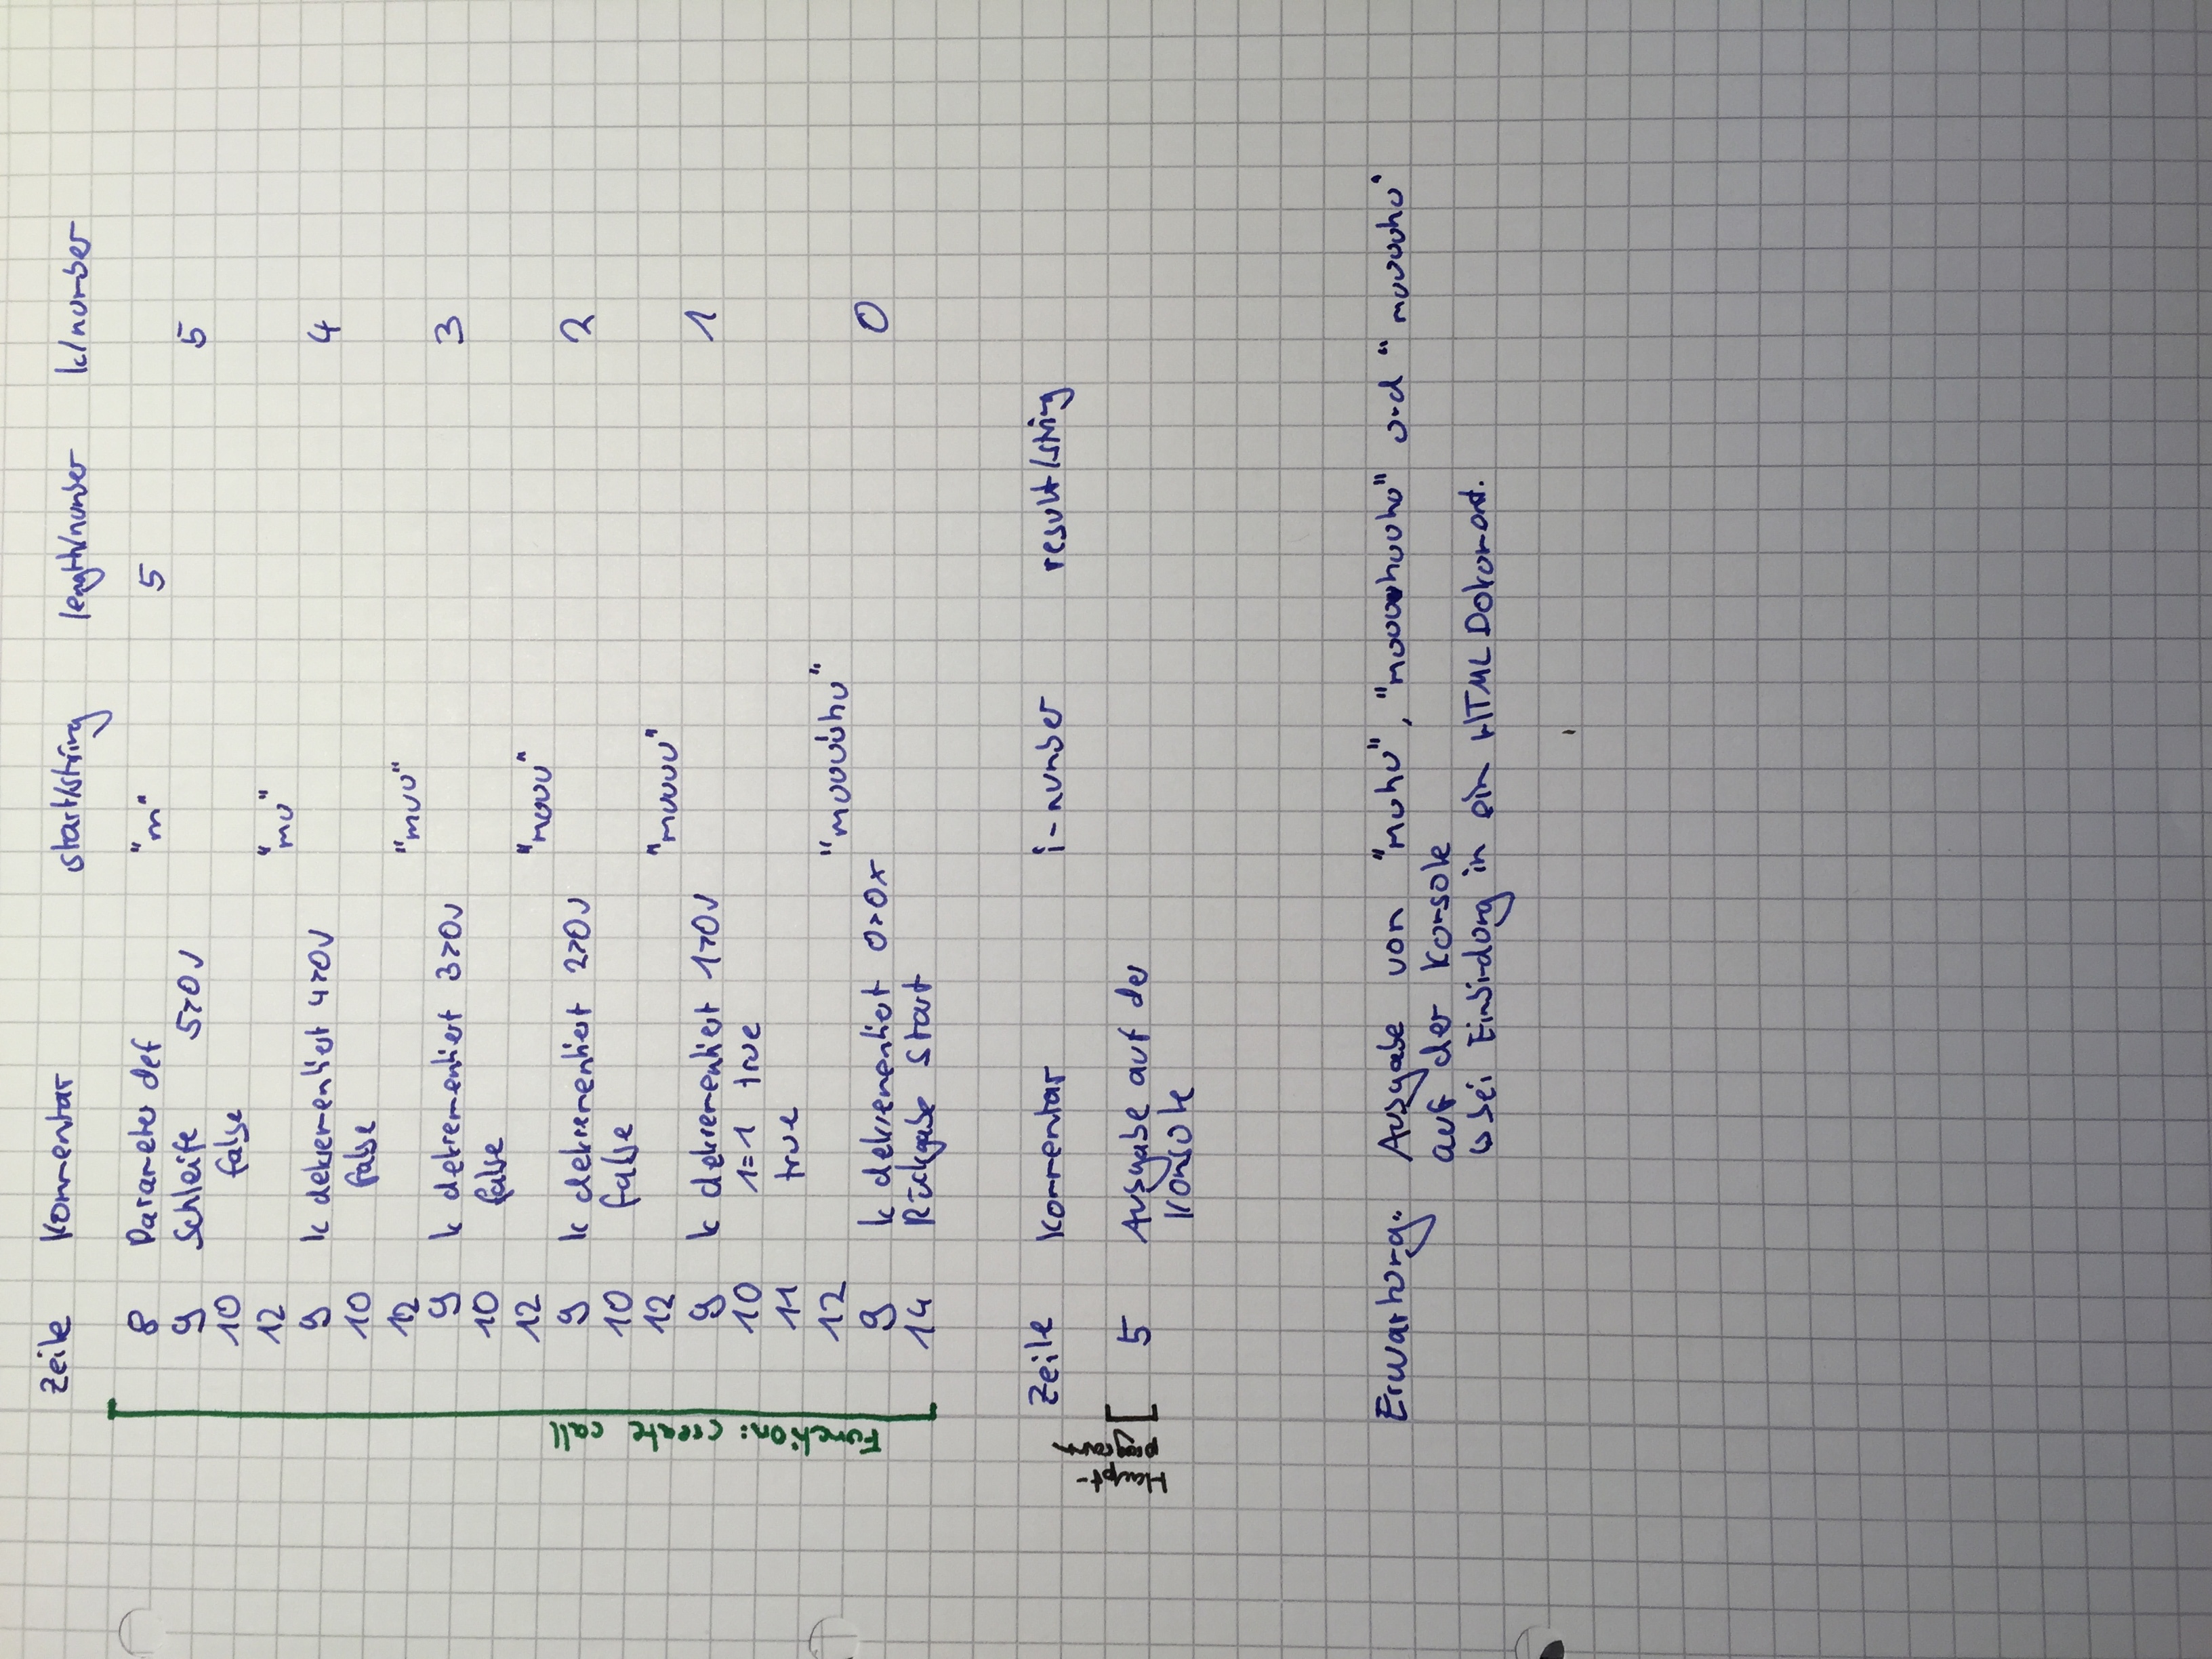 Zeile Kommentar start/string length/number k/number
8 Parameter def "m" 5
9 Schleife 5>0✓ 5
10 false
12 "mu"
9 k dekrementiert 4>0✓ 4
10 false
12 "muu"
9 k dekrementiert 3>0✓ 3
10 false
12 "muuu"
9 k dekrementiert 2>0✓ 2
10 false
12 "muuuu"
9 k dekrementiert 1>0✓ 1
10 1=1 true
11 true
12 "muuuuuhu"
9 k dekrementiert 0>0x 0
14 Rückgabe Start
Function: create call
Zeile Kommentar i-number result/string
Haupt-
programm
5 Ausgabe auf der
Konsole
Erwartung: Ausgabe von "muhu", und
auf der Konsole
↳ bei Einbindung in ein HTML Dokument.